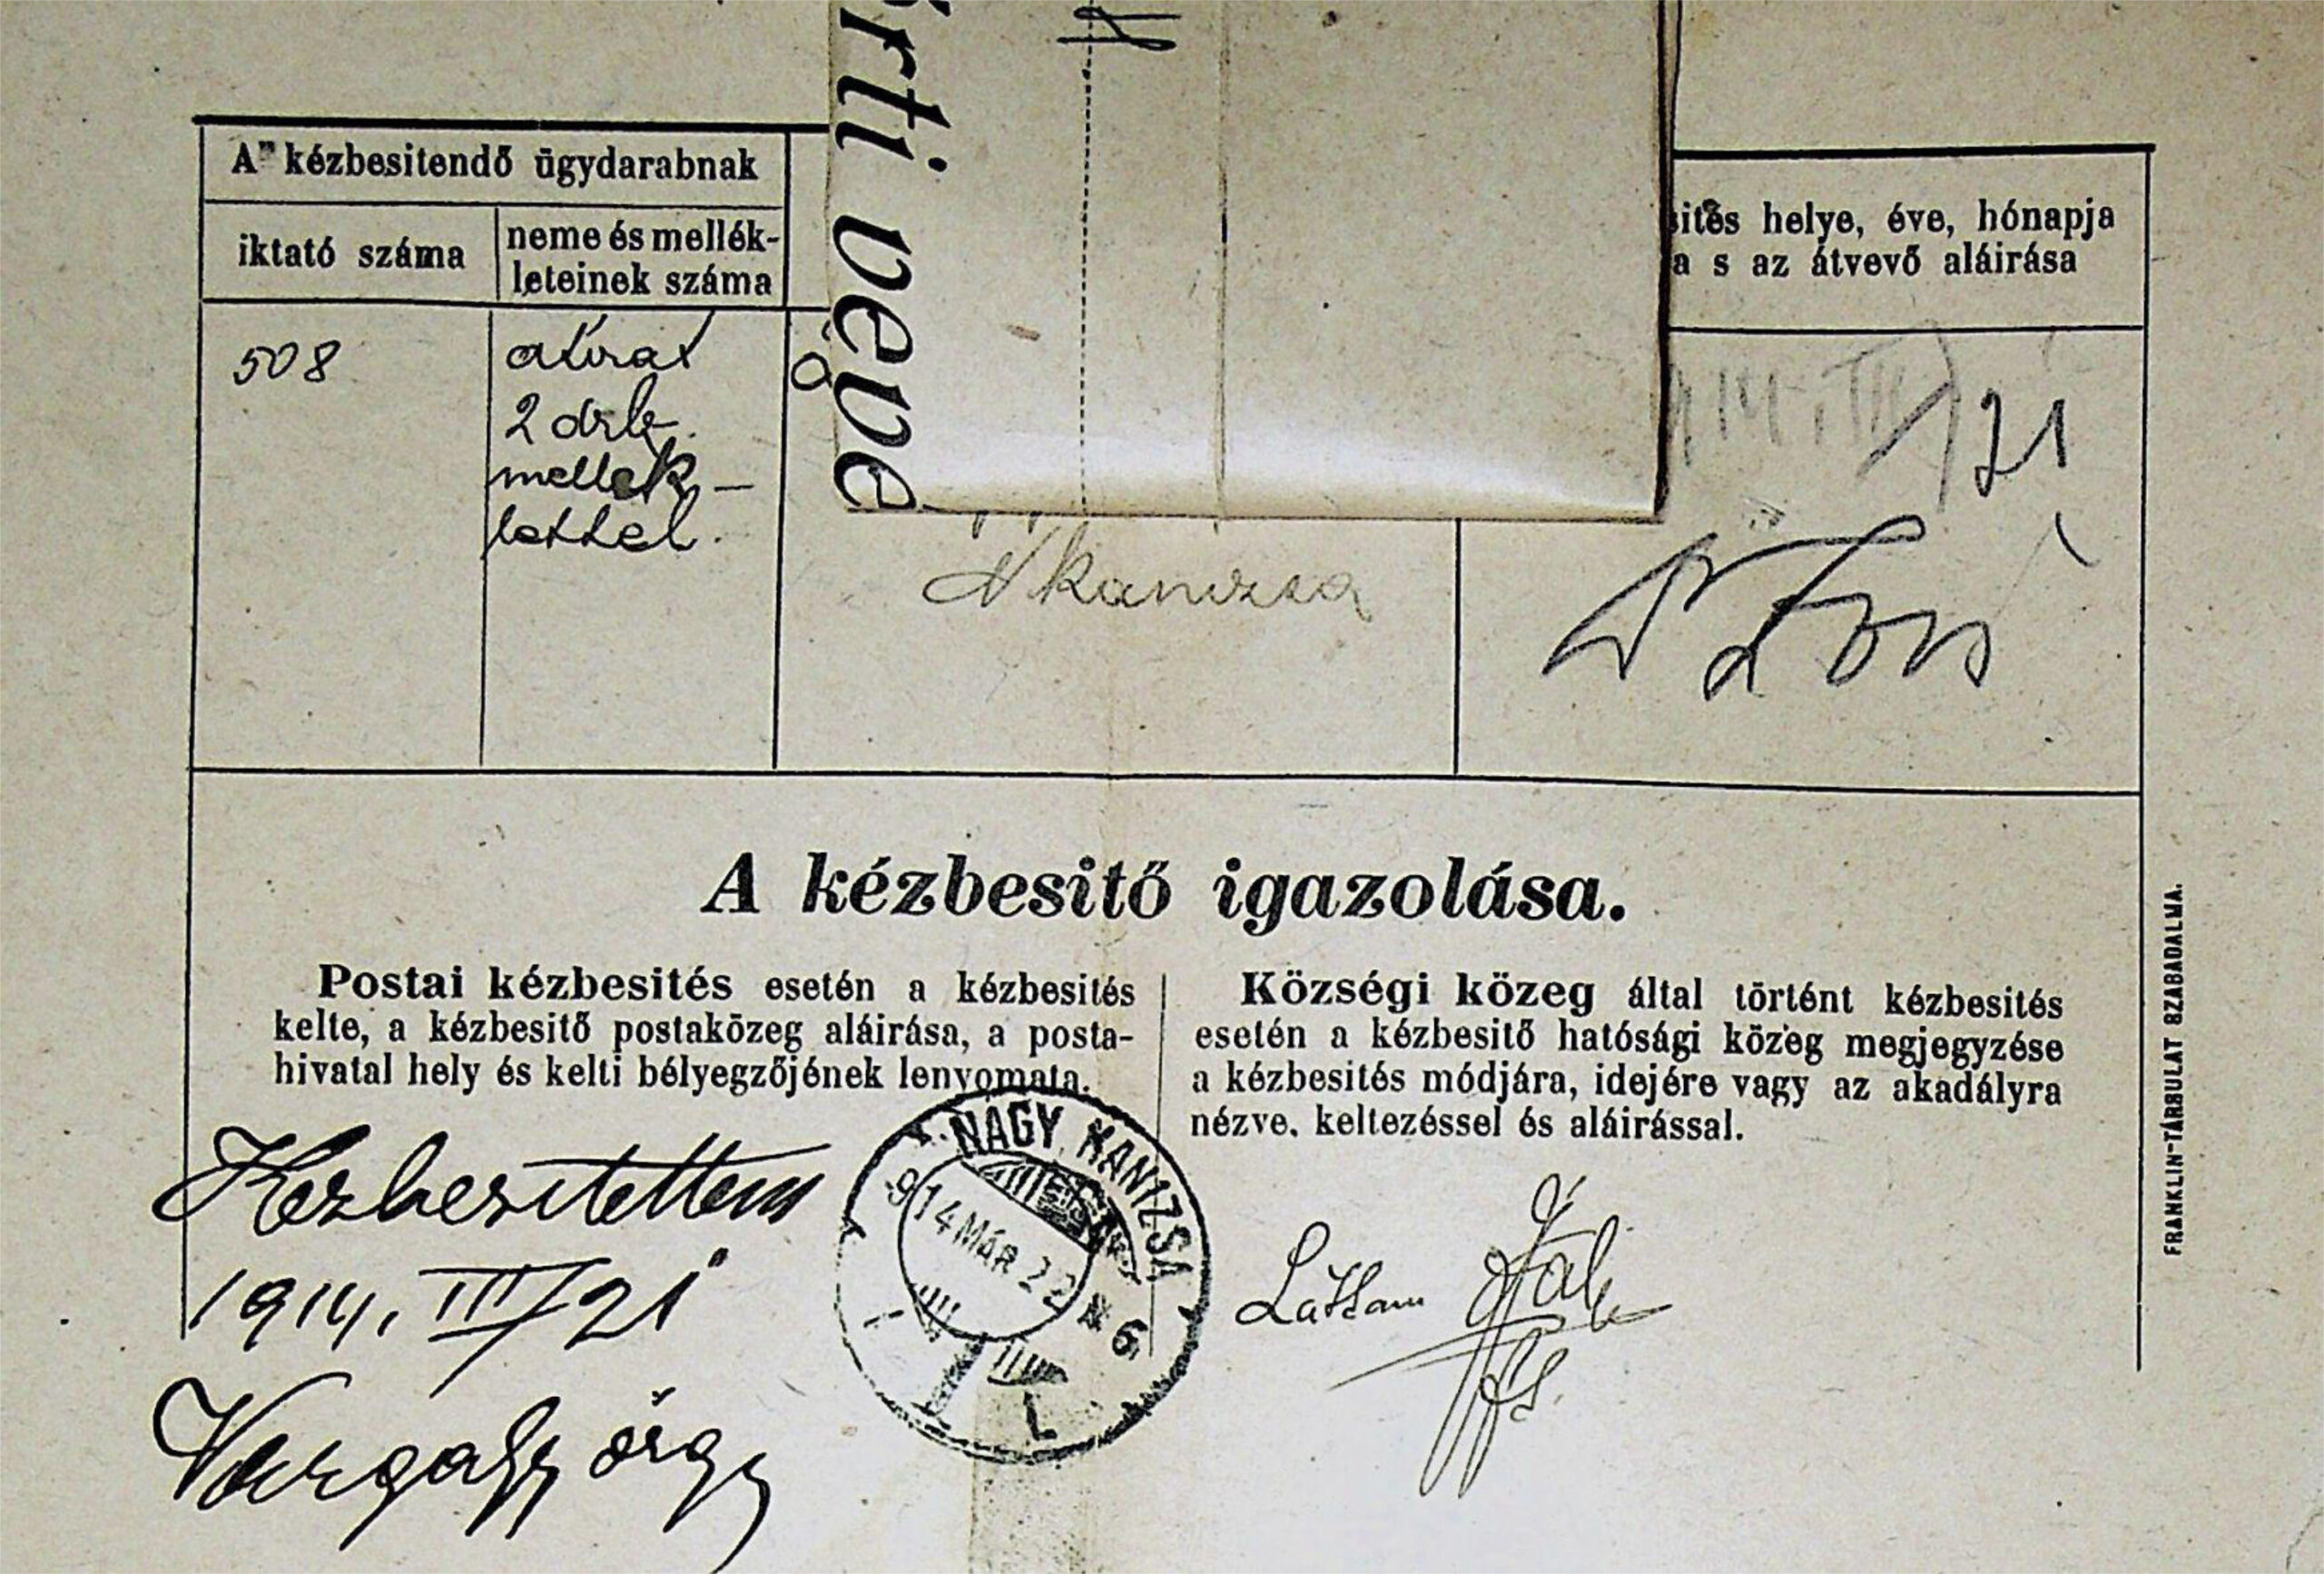 örti vevé
A kézbesitendő ügydarabnak
iktató száma
neme és mellék-
leteinek száma
sités helye, éve, hónapja
a s az átvevő aláirása
508
átirat
2 drb.
mellék-
lettel.
Nkanizsa
914. III/21
A kézbesitő igazolása.
Postai kézbesités esetén a kézbesités
kelte, a kézbesitő postaközeg aláirása, a posta-
hivatal hely és kelti bélyegzőjének lenyomata.
Kézbesitettem
1914. III/21
Varga György
NAGY KANIZSA
914 MÁR 22 N 6
Községi közeg által történt kézbesités
esetén a kézbesitő hatósági közeg megjegyzése
a kézbesités módjára, idejére vagy az akadályra
nézve, keltezéssel és aláirással.
Láttam
FRANKLIN-TÁRSULAT SZABADALMA.